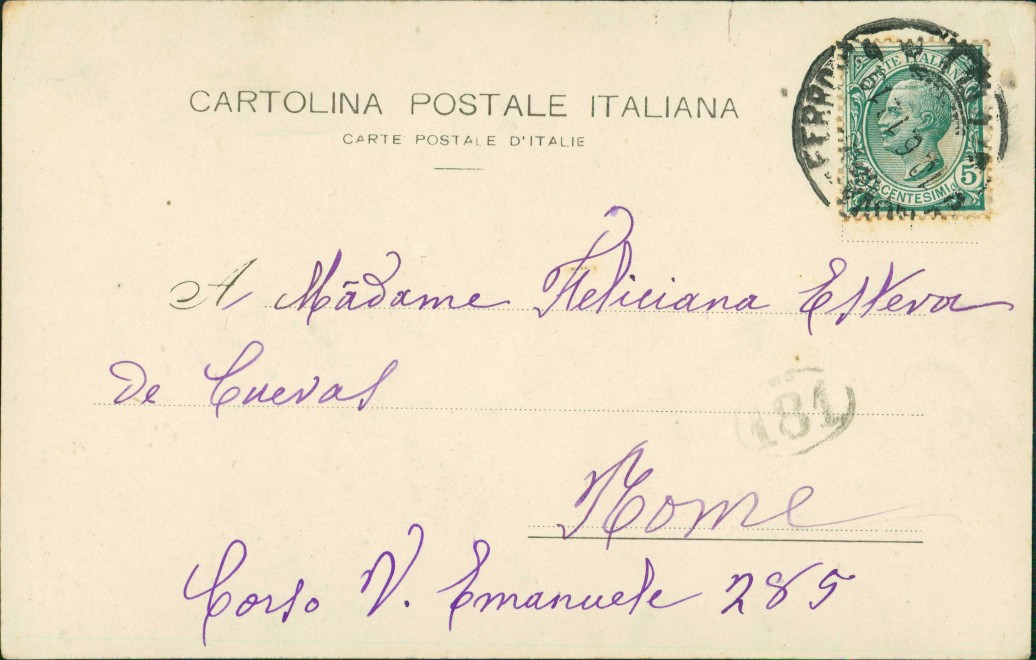 CARTOLINA POSTALE ITALIANA
CARTE POSTALE D'ITALIE
POSTE ITALIANE
5
CENTESIMI
A Mãdame Feliciana Esteva
de Cuevas
181
Rome
Corso V. Emanuele 285